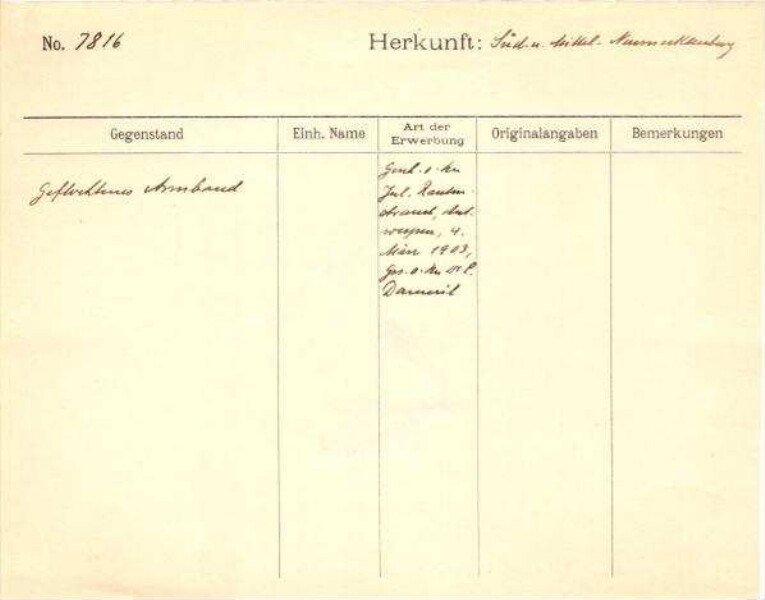 No. 7816
Herkunft: Süd-u. Mittel-Neumecklenburg
Gegenstand
Einh. Name
Art der Erwerbung
Originalangaben
Bemerkungen
Geflochtenes Armband
Gesch. v. Hrn
Jul. Rauten-
strauch, Ant-
werpen, 4.
März 1903,
Ges. v. Hrn